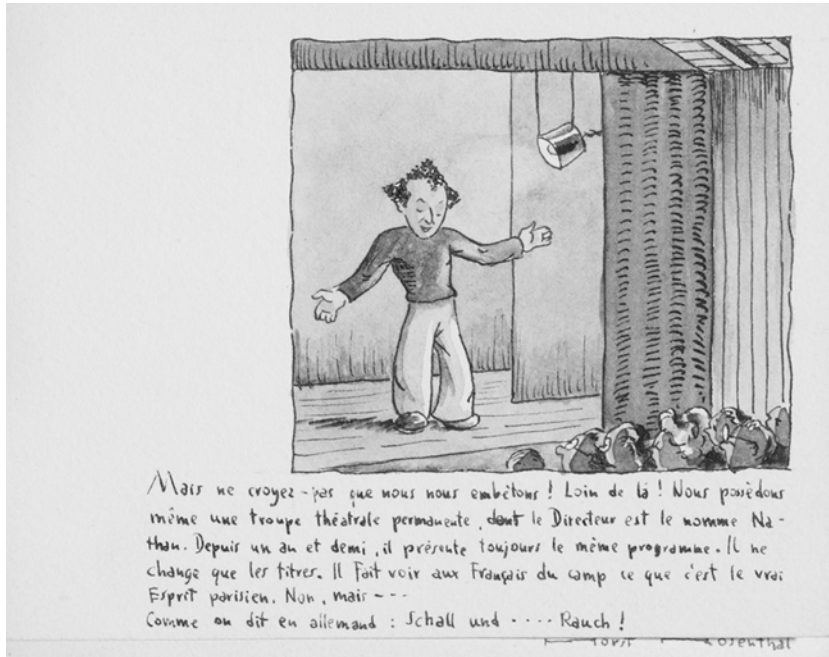 Mais ne croyez-pas que nous nous embêtons ! Loin de là ! Nous possèdons
même une troupe théatrale permanente, dont le Directeur est le nomme Na-
than. Depuis un an et demi, il présente toujours le même programme. Il ne
change que les titres. Il Fait voir aux Français du camp ce que c'est le vrai
Esprit parisien. Non, mais ---
Comme on dit en allemand : Schall und .... Rauch !
Horst Rosenthal